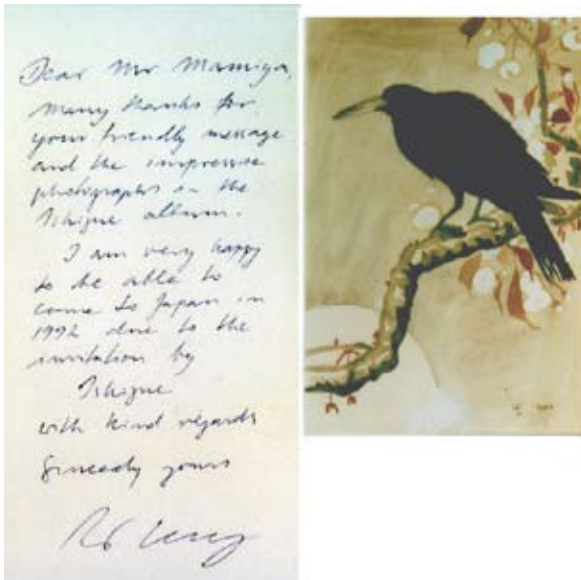 Dear Mr Mamiya,
many thanks for
your friendly message
and the impressive
photographs in the
Ishigure album.
I am very happy
to be able to
come to Japan in
1992 due to the
invitation by
with kind regards
Sincerely yours